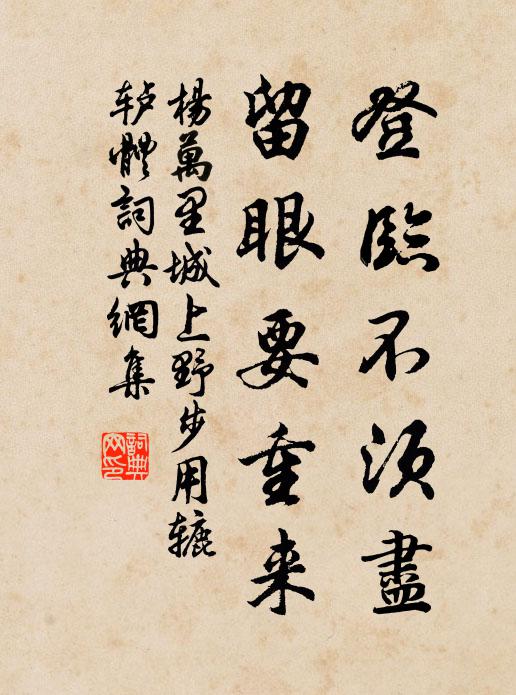 登臨不須盡
留眼要重来
楊萬里城上野步用辘
轳體詞典網集
詞典網印